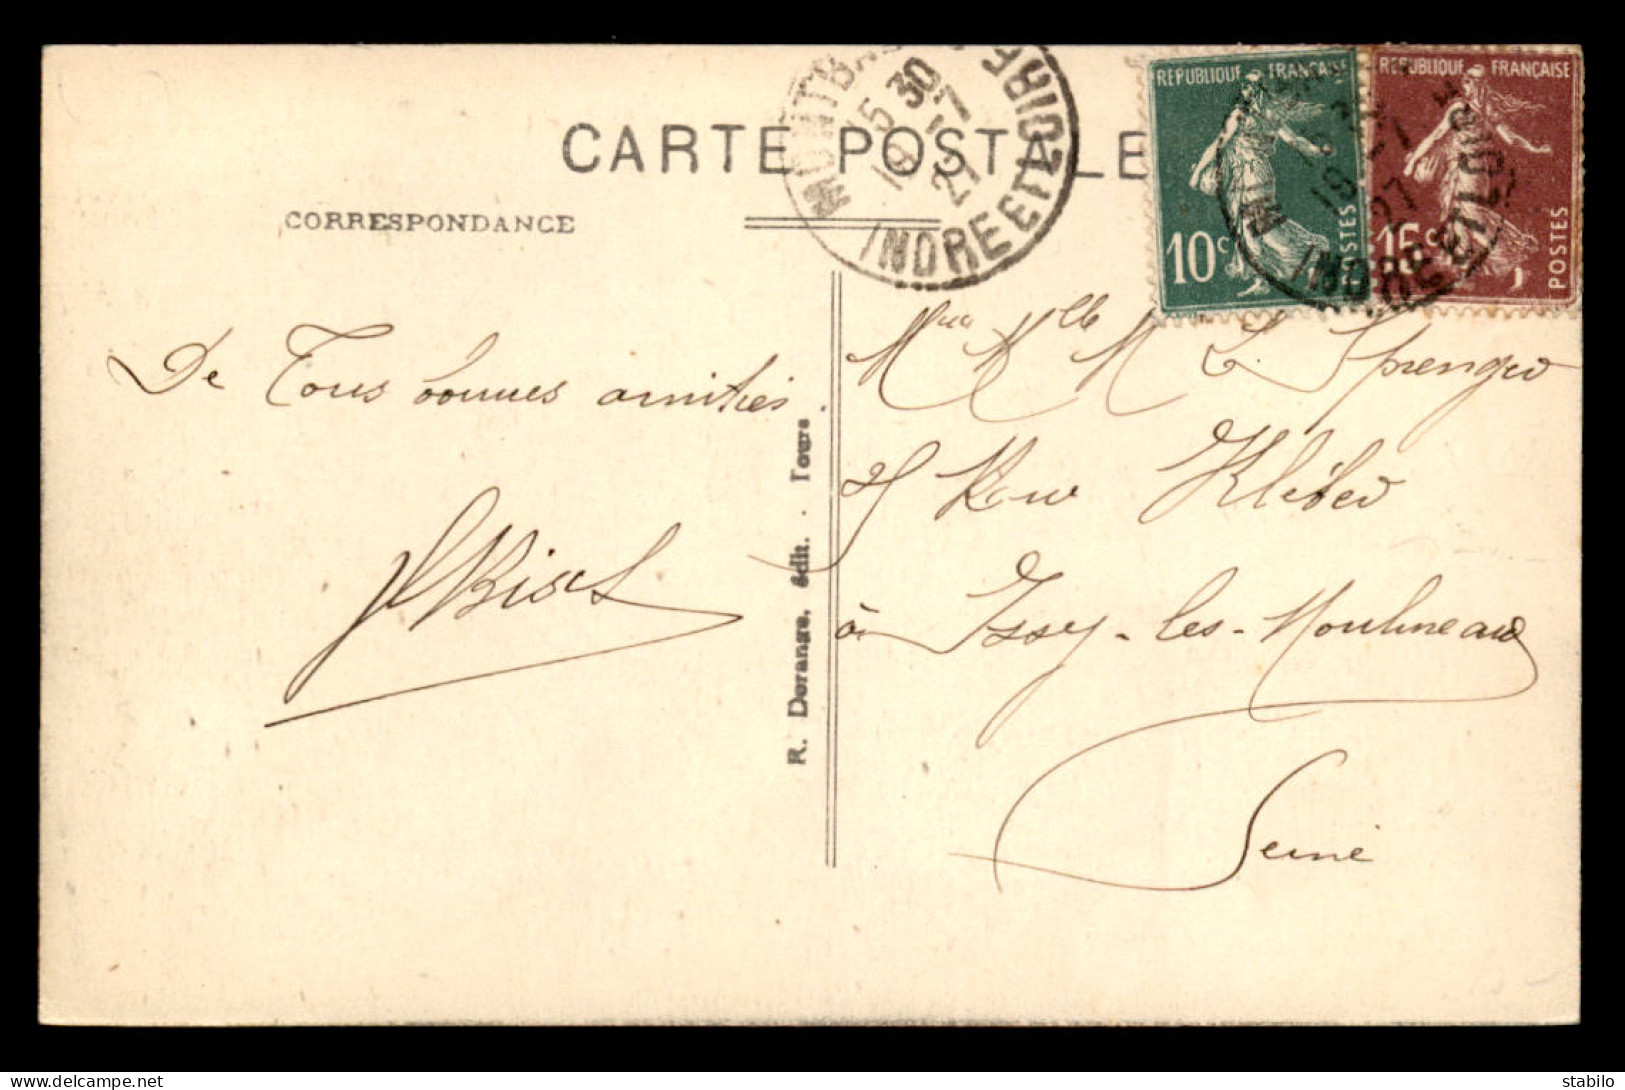 CARTE POSTALE
CORRESPONDANCE
MONTBA
INDRE ET LOIRE
15 30
18 - 7
27
REPUBLIQUE FRANÇAISE
10c
POSTES
REPUBLIQUE FRANÇAISE
15c
POSTES
INDRE ET LOIRE
De Tous bonnes amitiés.
R. Dorange, édit. . Tours
Mme Mlle M L. Sprenger
Rue Kléber
à Issy-les-Moulineaux
Seine
stabilo